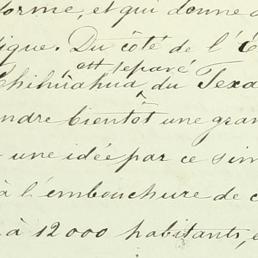 forme, et qui donne d
ique. Du côté de l'É
est séparé
Chihuahua, du Texa
endre bientôt une gran
une idée par ce sim
à l'embouchure de c
à 12000 habitants, e